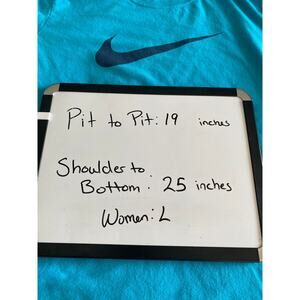 Pit to Pit: 19 inches
Shoulder to
Bottom: 25 inches
Women: L